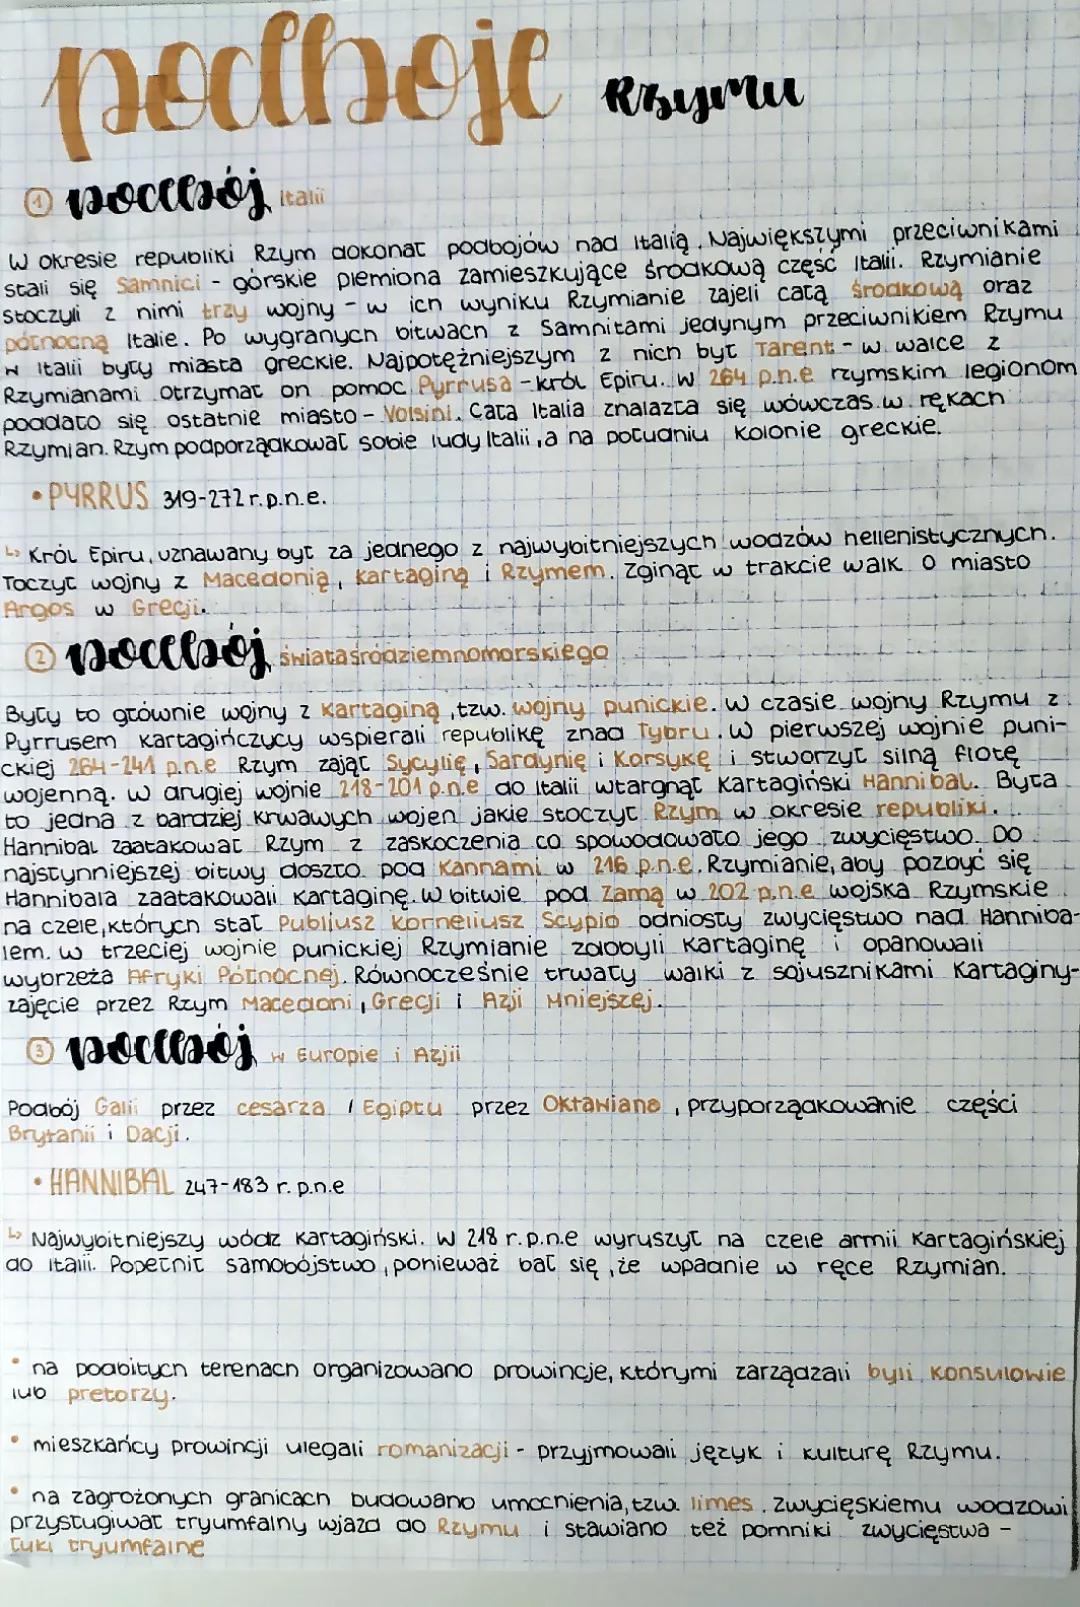 podboje Rzymu
① podbój Italii
W okresie republiki Rzym dokonał podbojów nad Italią. Największymi przeciwnikami
stali się Samnici - górskie plemiona zamieszkujące środkową część Italii. Rzymianie
stoczyli z nimi trzy wojny - w ich wyniku Rzymianie zajeli całą środkową oraz
północną Italie. Po wygranych bitwach z Samnitami jedynym przeciwnikiem Rzymu
w Italii były miasta greckie. Najpotężniejszym z nich był Tarent - w walce z
Rzymianami otrzymał on pomoc Pyrrusa - król Epiru. W 264 p.n.e rzymskim legionom
poddało się ostatnie miasto - Volsini. Cała Italia znalazła się wówczas w rękach
Rzymian. Rzym podporządkował sobie ludy Italii, a na południu kolonie greckie.
• PYRRUS 319-272 r.p.n.e.
↳ Król Epiru, uznawany był za jednego z najwybitniejszych wodzów hellenistycznych.
Toczył wojny z Macedonią, Kartaginą i Rzymem. Zginął w trakcie walk o miasto
Argos w Grecji.
② podbój świata śródziemnomorskiego
Były to głównie wojny z Kartaginą, tzw. wojny punickie. W czasie wojny Rzymu z
Pyrrusem kartagińczycy wspierali republikę znad Tybru. W pierwszej wojnie puni-
ckiej 264-241 p.n.e Rzym zajął Sycylię, Sardynię i Korsykę i stworzył silną flotę
wojenną. W drugiej wojnie 218-201 p.n.e do Italii wtargnął Kartagiński Hannibal. Była
to jedna z bardziej krwawych wojen jakie stoczył Rzym w okresie republiki.
Hannibal zaatakował Rzym z zaskoczenia co spowodowało jego zwycięstwo. Do
najsłynniejszej bitwy doszło pod Kannami w 216 p.n.e. Rzymianie, aby pozbyć się
Hannibala zaatakowali Kartaginę. W bitwie pod Zamą w 202 p.n.e wojska Rzymskie
na czele, których stał Publiusz Korneliusz Scypio odniosły zwycięstwo nad Hanniba-
lem. W trzeciej wojnie punickiej Rzymianie zdobyli Kartaginę i opanowali
wybrzeża Afryki Północnej. Równocześnie trwały walki z sojusznikami Kartaginy-
zajęcie przez Rzym Macedoni, Grecji i Azji Mniejszej.
③ podbój w Europie i Azjii
Podbój Galii przez cesarza i Egiptu przez Oktawiana, przyporządkowanie części
Brytanii i Dacji.
• HANNIBAL 247-183 r.p.n.e
↳ Najwybitniejszy wódz kartagiński. W 218 r.p.n.e wyruszył na czele armii Kartagińskiej
do Italii. Popełnił samobójstwo, ponieważ bał się, że wpadnie w ręce Rzymian.
• na podbitych terenach organizowano prowincje, którymi zarządzali byli konsulowie
lub pretorzy.
• mieszkańcy prowincji ulegali romanizacji - przyjmowali język i kulturę Rzymu.
• na zagrożonych granicach budowano umocnienia, tzw. limes. Zwycięskiemu wodzowi
przysługiwał tryumfalny wjazd do Rzymu i stawiano też pomniki zwycięstwa -
łuki tryumfalne